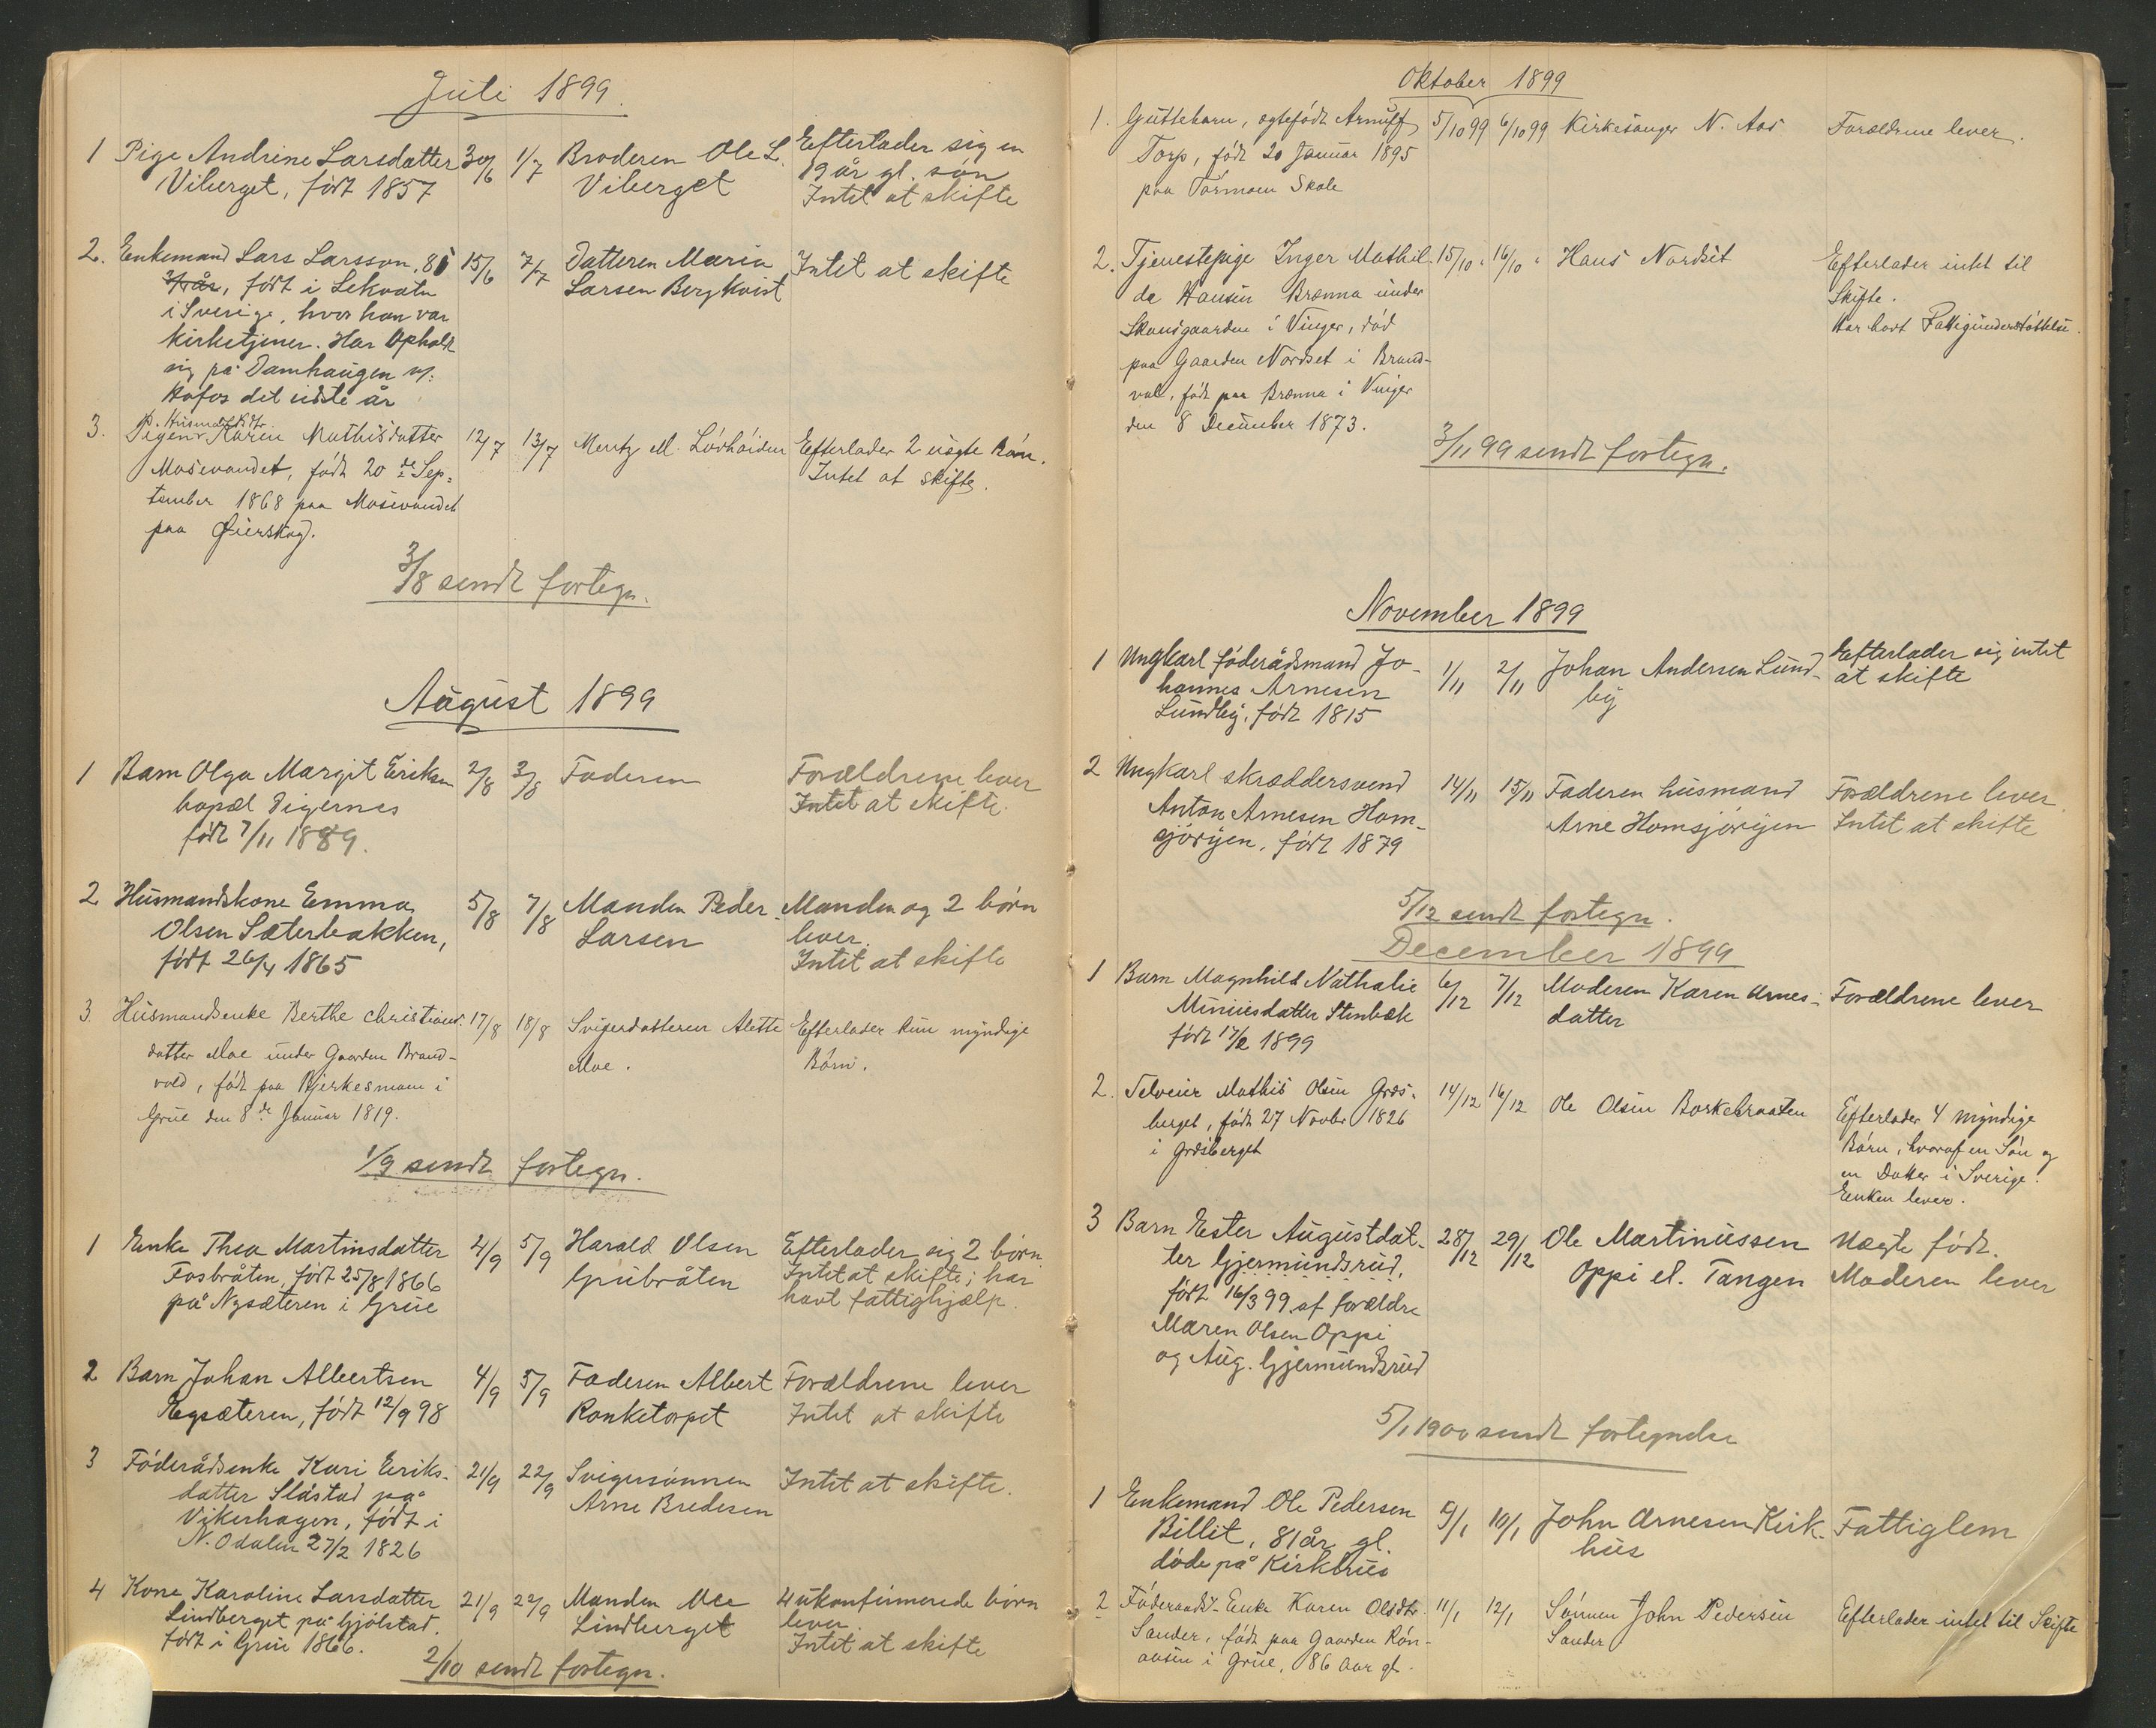 Juli 1899.
1 Pige Andrine Larsdatter 30/6 1/7 Broderen Ole L. Efterlader sig en
Viberget, født 1857 Viberget 19 år gl. søn
Intet at skifte
2. Enkemand Lars Larsson, 15/6 7/7 Datteren Maria Intet at skifte
født i Lekvatn Larsen Bergkvist
i Sverige, hvor han var
kirketjener. Har Opholdt
sig på Damhaugen
det sidste år
3. Pigen Karen Mathisdatter 12/7 13/7 Mentz M. Efterlader 2 uægte Børn.
Husmdsdtr
Mosevandet, født 20de Sep- Intet at skifte.
tember 1868 paa Mosevandet
paa
3/8 sendt fortegn.
August 1899
1 Barn Olga Margit Eriksen 2/8 3/8 Faderen Forældrene lever
bopæl Digernes Intet at skifte.
født 7/11 1889.
2 Husmandskone Emma 5/8 7/8 Manden Peder Manden og 2 børn
Olsen Sæterbakken, Larsen lever.
født 26/4 1865 Intet at skifte
3. Husmandsenke Berthe Christians- 17/8 18/8 Svigerdatteren Alette Efterlader kun myndige
datter Moe under Gaarden Brand- Moe. Børn.
vold, født paa Bjerkesmoen i
Grue den 8de Januar 1819.
1/9 sendt fortegn.
1 Enke Thea Martinsdatter 4/9 5/9 Harald Olsen Efterlader sig 2 børn
Fosbråten, født 25/8 1866 Grubråten Intet at skifte; har
på Nysæteren i Grue havt fattighjælp.
2 Barn Johan Albertsen 4/9 5/9 Faderen Albert Forældrene lever
født 12/9 98 Ronketorpet Intet at skifte
3 Føderådsenke Kari Eriks- 21/9 22/9 Svigersønnen Intet at skifte.
datter Slåstad på Arne Bredesen
Vikerhagen, født i
N. Odalen 27/2 1826
4 Kone Karoline Larsdatter 21/9 22/9 Manden 4 ukonfirmerede børn
Lindberget på Gjølstad. Lindberget lever.
født i Grue 1866. Intet at skifte
2/10 sendt fortegn.
Oktober 1899
1. Guttebarn, ægtefødt Arnulf 5/10 99 6/10 99 Kirkesanger N. Aas Forældrene lever.
Torp, født 20 Januar 1895
paa Skole
2. Tjenestepige Inger Mathil- 15/10 " 16/10 " Hans Nordset Efterlader intet til
de Hansen Brænna under Skifte.
Skansgaarden i Vinger, død Har havt Fattigunderstøttelse.
paa Gaarden Nordset i Brand-
val, født paa Brænna i Vinger
den 8 December 1873.
3/11 99 sendt fortegn.
November 1899
1 Ungkarl føderådsmand Jo- 1/11 2/11 Johan Andersen Lund- Efterlader sig intet
hannes Arnesen by at skifte
Lundby, født 1815
2 Ungkarl skræddersvend 14/11 15/11 Faderen husmand Forældrene lever.
Anton Arnesen Hom- Arne Homsjøryen Intet at skifte
sjøryen, født 1879
5/12 sendt fortegn.
December 1899
1 Barn Magnhild Nathalie 6/12 7/12 Moderen Karen Arnes- Forældrene lever
Miniusdatter Stenbæk datter
født 17/2 1899
2. Selveier Mathis Olsen Græs- 14/12 16/12 Ole Olsen Borkebraaten Efterlader 4 myndige
berget, født 27 Novbr 1826 Børn, hvoraf en Søn og
i Græsberget en Datter i Sverige.
Enken lever.
3 Barn Ester Augustdat- 28/12 29/12 Ole Martinussen Uægte født.
ter Gjermundsrud, Oppi el. Tangen Moderen lever
født 16/3 99 af forældre
Maren Olsen Oppi
og Aug. Gjermundsrud
5/1 1900 sendt fortegnelse
1 Enkemand Ole Pedersen 5/1 10/1 John Arnesen Kirk- Fattiglem
Billit, 81 år gl. hus
døde på Kirkhus
2 Føderaads-Enke Karen Olsdtr. 11/1 12/1 Sønnen John Pedersen Efterlader intet til Skifte
Sander, født paa Gaarden Røn- Sander
aasen i Grue, 86 Aar gl.